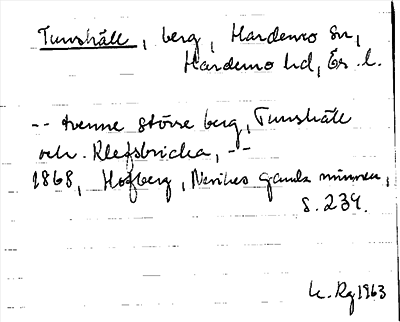 Tunshäll, berg, Hardemo sn,
Hardemo hd, Ör. l.
-- tvenne större berg, Tunshäll
och Klefsbricka, --
1868, Hofberg, Nerikes gamla minnen,
s. 239.
1963